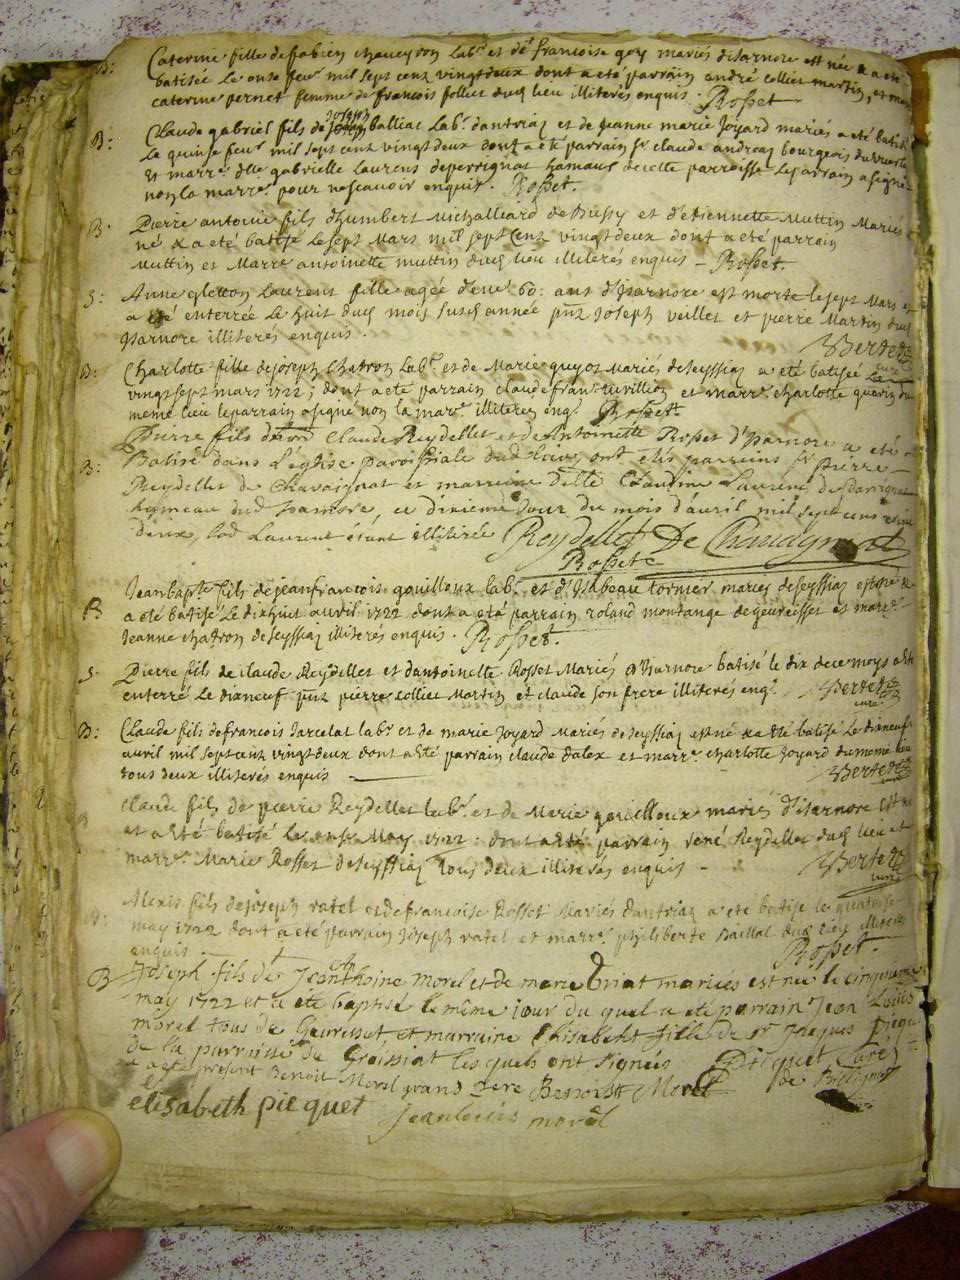 B: Caterine fille de fabien chaveyron lab.r et de francoise goy mariés disarnore est née & a été
batisée le onse feu.r mil sept cens vingtdeux dont a été parrain andré collier martin, et marr
caterine pernet femme de francois follier dud lieu illiterés enquis. Rosset
B: Claude gabriel fils de joseph balliat lab.r dantriaz et de jeanne marie joyard mariés a été batisé
le quinse feur. mil sept cens vingtdeux dont a été parrain sr claude andreaz bourgeois
et marr.e dlle gabrielle laurens deperrignat hameau de cette parroisse le parrain a signé
non la marr.e pour ne scavoir enquis. Rosset.
B. Pierre antoine fils d'humbert Michalliard de Bussy et d'etiennette Muttin Mariés
né & a eté batisé le sept Mars mil sept Cens vingt deux dont a eté parrain
Muttin et Marr.e antoinette muttin dud lieu illiterés enquis – Rosset.
S: Anne Laurent fille agée d'env. 60: ans d'Isarnore est morte le sept Mars et
a eté enterrée le huit dud mois susd année pnt Joseph veillet et pierre Martin dud
Isarnore illiterés enquis. Bertet
curé
B: Charlotte fille de joseph Chatron Lab.r et de Marie guyot Mariés de seyssiaz a eté batisée Le
vingt sept mars 1722; dont a eté parrain claude fran: et marr.e charlotte du
meme lieu le parrain a signé non la marr.e illiterés enq. Rosset
B: Pierre fils d Claude Reydellet et de Antoinette Rosset d'Isarnore a eté
Batisé dans l'église paroissiale dud lieu, ont estés parreins sr Pierre
Reydellet de Chavaignat et marreine Dlle Claudine Laurent de Perrignat
hameau dud Isarnore, ce dixieme jour du mois d'avril mil sept cens vint
deux, lad Laurent étant illitirée Reydellet De Chavaignat
Rosset
B Jean bapte fils de jean francois gouilloux lab.r et d'Isabeau tornier mariés de seyssiaz est né &
a été batisé le dixhuit avril 1722 dont a eté parrain roland montange de geureisset et marr.e
Jeanne chatron de seyssiaz illiterés enquis. Rosset.
S. Pierre fils de claude Reydellet et dantoinette Rosset Mariés d'Isarnore batisé le dix de ce moys a eté
enterré Le dixneuf pnt pierre collier Martin et claude son frere illiterés enq. Bertet
curé
B: Claude fils de francois jarcelat lab.r et de marie Joyard Mariés de seyssiaz est né & a eté batisé le dixneuf
avril mil sept cens vingt deux dont a eté parrain claude dalex et marr.e charlotte Joyard du meme lieu
tous deux illiterés enquis Bertet
B Claude fils de pierre Reydellet lab.r et de Marie gouilloux mariés d'isarnore est né
et a eté batisé le onse May 1722. dont a eté parrain rené Reydellet dud lieu et
marr.e Marie Rosset de seyssiaz tous deux illiterés enquis – Bertet
curé
B: Alexis fils de joseph ratel et de francoise Rosset Mariés dantriaz a eté batisé le quatorse
may 1722 dont a eté parrain joseph ratel et marr.e philiberte baillat dud lieu illiterés
enquis – Rosset.
B Joseph fils de Jean Anthoine Morel et de marie Briat mariés est né le cinquieme
may 1722 et a eté baptisé le même jour du quel a eté parrain Jean Louis
morel tous de Geurisset, et marraine Elisabeht fille de sr Jaques picque
de la parroisse de Groissiat les quels ont signés Picquet Curé
a été présent Benoit Morel grand pere Bennoistt Morel de
elisabeth piequet Jean louis morel